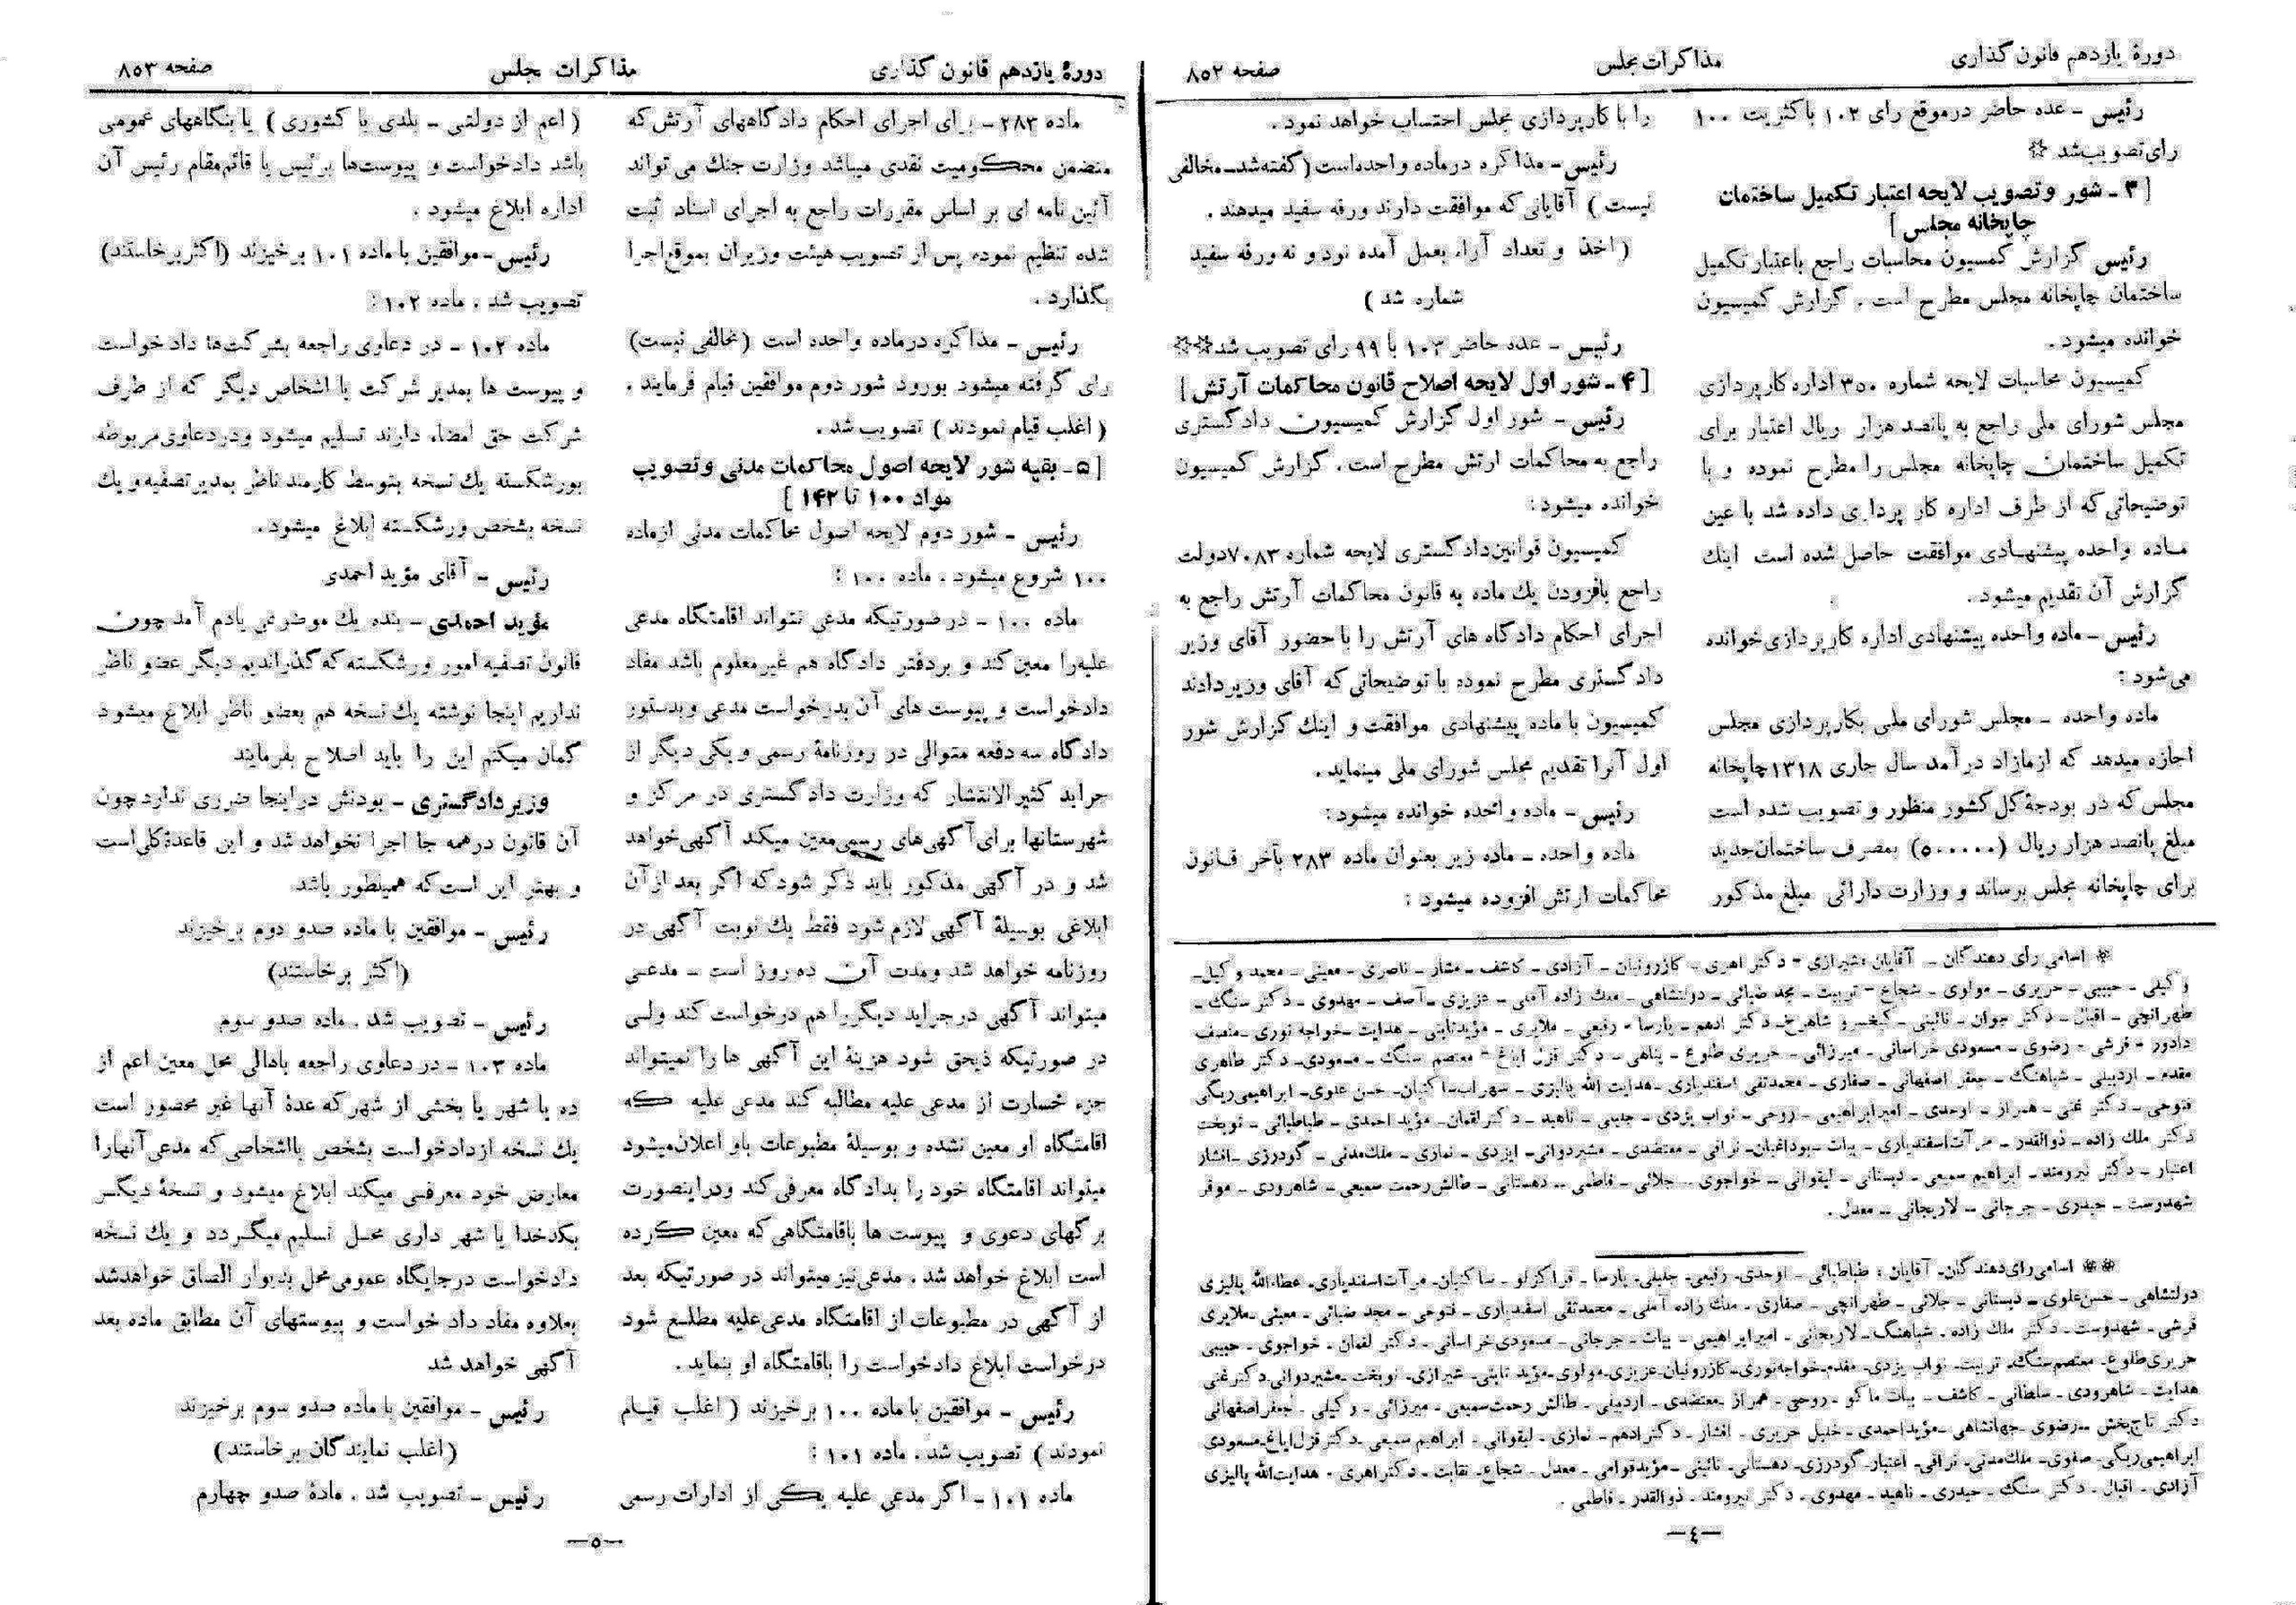 دورهٔ یازدهم قانون گذاری
مذاکرات مجلس
صفحه ۸۵۲
رئیس – عده حاضر درموقع رای ۱۰۲ باکثریت ۱۰۰
رای تصویب شد ☆
[ ۳ ـ شور و تصویب لایحه اعتبار تکمیل ساختمان
چاپخانه مجلس ]
رئیس گزارش کمسیون محاسبات راجع باعتبار تکمیل
ساختمان چاپخانه مجلس مطرح است . گزارش کمیسیون
خوانده میشود .
کمیسیون محاسبات لایحه شماره ۳۵۰ اداره کارپردازی
مجلس شورای ملی راجع به پانصد هزار ریال اعتبار برای
تکمیل ساختمان چاپخانه مجلس را مطرح نموده و با
توضیحاتی که از طرف اداره کار پردازی داده شد با عین
ماده واحده پیشنهادی موافقت حاصل شده است اینك
گزارش آن تقدیم میشود .
رئیس – ماده واحده پیشنهادی اداره کارپردازی خوانده
می شود :
ماده واحده – مجلس شورای ملی بکارپردازی مجلس
اجازه میدهد که ازمازاد درآمد سال جاری ۱۳۱۸ چاپخانه
مجلس که در بودجهٔ کل کشور منظور و تصویب شده است
مبلغ پانصد هزار ریال (۵۰۰۰۰۰) بمصرف ساختمان جدید
برای چاپخانه مجلس برساند و وزارت دارائی مبلغ مذکور
را با کارپردازی مجلس احتساب خواهد نمود .
رئیس – مذاکره درماده واحده است (گفته شد – مخالفی
نیست ) آقایانی که موافقت دارند ورقه سفید میدهند .
( اخذ و تعداد آراء بعمل آمده نود و نه ورقه سفید
شماره شد )
رئیس – عده حاضر ۱۰۲ با ۹۹ رای تصویب شد ☆☆
[ ۴ ـ شور اول لایحه اصلاح قانون محاکمات آرتش ]
رئیس – شور اول گزارش کمیسیون دادگستری
راجع به محاکمات ارتش مطرح است . گزارش کمیسیون
خوانده میشود :
کمیسیون قوانین دادگستری لایحه شماره ۷۰۸۳ دولت
راجع بافزودن یك ماده به قانون محاکمات آرتش راجع به
اجرای احکام دادگاه های آرتش را با حضور آقای وزیر
دادگستری مطرح نموده با توضیحاتی که آقای وزیر دادند
کمیسیون با ماده پیشنهادی موافقت و اینك گزارش شور
اول آنرا تقدیم مجلس شورای ملی مینماید .
رئیس – ماده واحده خوانده میشود :
ماده واحده – ماده زیر بعنوان ماده ۲۸۳ بآخر قانون
محاکمات ارتش افزوده میشود :
☆ اسامی رای دهندگان – آقایان مشیرازی – دکتر اهری – کازرونیان – آزادی – کاشف – مشار – ناصری – معینی – محمد وکیل –
وکیلی – حبیبی – حریری – مولوی – شجاع – تربیت – مجد ضیائی – دولتشاهی – ملك زاده آملی – عزیزی – آصف – مهدوی – دکتر سنگ –
طهرانچی – اقبال – دکتر جوان – نائینی – کیخسرو شاهرخ – دکتر ادهم – پارسا – رفیعی – ملایری – مؤید ثابتی – هدایت – خواجه نوری – منصف
دادور – قرشی – رضوی – مسعودی خراسانی – میرزائی – حریری طلوع – پناهی – دکتر قزل ایاغ – معتصم سنگ – مسعودی – دکتر طاهری
مقدم – اردبیلی – شباهنگ – جعفر اصفهانی – صفاری – محمدتقی اسفندیاری – هدایت الله پالیزی – سهراب ساکنیان – حسن علوی – ابراهیمی ریگی
فتوحی – دکتر غنی – همراز – اوحدی – امیر ابراهیمی – روحی – نواب یزدی – جلیلی – ناهید – دکتر لقمان – مؤید احمدی – طباطبائی – نوبخت
دکتر ملك زاده – ذوالقدر – مرآت اسفندیاری – بیات – بوداغیان – نراقی – معتضدی – مشیردوانی – ایزدی – نمازی – ملك مدنی – گودرزی – افشار
اعتبار – دکتر نیرومند – ابراهیم سمیعی – دبستانی – لیقوانی – خواجوی – جلائی – فاطمی – دهستانی – طالش رحمت سمیعی – شاهرودی – موقر
شهدوست – حیدری – جرجانی – لاریجانی – معدل .
☆☆ اسامی رای دهندگان – آقایان : طباطبائی – اوحدی – رفیعی – جلیلی – پارسا – قراگزلو – ساکنیان – مرآت اسفندیاری – عطاءالله پالیزی
دولتشاهی – حسن علوی – دبستانی – جلائی – طهرانچی – صفاری – ملك زاده آملی – محمدتقی اسفندیاری – فتوحی – مجد ضیائی – معینی – ملایری
قرشی – شهدوست – دکتر ملك زاده – شباهنگ – لاریجانی – امیر ابراهیمی – بیات – جرجانی – مسعودی خراسانی – دکتر لقمان – خواجوی – حبیبی
حریری طلوع – معتصم سنگ – تربیت – نواب یزدی – مقدم – خواجه نوری – کازرونیان – عزیزی – مولوی – مؤید ثابتی – شیرازی – نوبخت – مشیردوانی – دکتر غنی
هدایت – شاهرودی – سلطانی – کاشف – بیات ماکو – روحی – همراز – معتضدی – اردبیلی – طالش رحمت سمیعی – میرزائی – وکیلی – جعفر اصفهانی
دکتر تاج بخش – رضوی – جهانشاهی – مؤید احمدی – خلیل حریری – افشار – دکتر ادهم – نمازی – لیقوانی – ابراهیم سمیعی – دکتر قزل ایاغ – مسعودی
ابراهیمی ریگی – صفوی – ملك مدنی – نراقی – اعتبار – گودرزی – دهستانی – نائینی – مؤید قوامی – معدل – شجاع – نقابت – دکتر اهری – هدایت الله پالیزی
آزادی – اقبال – دکتر سنگ – حیدری – ناهید – مهدوی – دکتر نیرومند – ذوالقدر – فاطمی .
—٤—
دورهٔ یازدهم قانون گذاری
مذاکرات مجلس
صفحه ۸۵۳
ماده ۲۸۳ – برای اجرای احکام دادگاههای آرتش که
متضمن محکومیت نقدی میباشد وزارت جنك می تواند
آئین نامه ای بر اساس مقررات راجع به اجرای اسناد ثبت
شده تنظیم نموده پس از تصویب هیئت وزیران بموقع اجرا
بگذارد .
رئیس – مذاکره درماده واحده است (مخالفی نیست)
رای گرفته میشود بورود شور دوم موافقین قیام فرمایند .
( اغلب قیام نمودند ) تصویب شد .
[ ۵ ـ بقیه شور لایحه اصول محاکمات مدنی و تصویب
مواد ۱۰۰ تا ۱۴۲ ]
رئیس – شور دوم لایحه اصول محاکمات مدنی ازماده
۱۰۰ شروع میشود . ماده ۱۰۰ :
ماده ۱۰۰ – در صورتیکه مدعی نتواند اقامتگاه مدعی
علیه را معین کند و بر دفتر دادگاه هم غیرمعلوم باشد مفاد
دادخواست و پیوست های آن بدرخواست مدعی و بدستور
دادگاه سه دفعه متوالی در روزنامهٔ رسمی و یکی دیگر از
جراید کثیرالانتشار که وزارت دادگستری در مرکز و
شهرستانها برای آگهی های رسمی معین میکند آگهی خواهد
شد و در آگهی مذکور باید ذکر شود که اگر بعد از آن
ابلاغی بوسیلهٔ آگهی لازم شود فقط یك نوبت آگهی در
روزنامه خواهد شد ومدت آن ده روز است – مدعی
میتواند آگهی درجراید دیگر را هم درخواست کند ولی
در صورتیکه ذیحق شود هزینهٔ این آگهی ها را نمیتواند
جزء خسارت از مدعی علیه مطالبه کند مدعی علیه که
اقامتگاه او معین نشده و بوسیلهٔ مطبوعات باو اعلان میشود
میتواند اقامتگاه خود را بدادگاه معرفی کند و دراینصورت
برگهای دعوی و پیوست ها باقامتگاهی که معین کرده
است ابلاغ خواهد شد . مدعی نیز میتواند در صورتیکه بعد
از آگهی در مطبوعات از اقامتگاه مدعی علیه مطلع شود
درخواست ابلاغ دادخواست را باقامتگاه او بنماید .
رئیس – موافقین با ماده ۱۰۰ برخیزند ( اغلب قیام
نمودند ) تصویب شد . ماده ۱۰۱ :
ماده ۱۰۱ – اگر مدعی علیه یکی از ادارات رسمی
( اعم از دولتی – بلدی یا کشوری ) یا بنگاههای عمومی
باشد دادخواست و پیوست‌ها برئیس یا قائم مقام رئیس آن
اداره ابلاغ میشود .
رئیس – موافقین با ماده ۱۰۱ برخیزند (اکثر برخاستند)
تصویب شد . ماده ۱۰۲ :
ماده ۱۰۲ – در دعاوی راجعه بشرکت‌ها دادخواست
و پیوست ها بمدیر شرکت یا اشخاص دیگر که از طرف
شرکت حق امضاء دارند تسلیم میشود و در دعاوی مربوطه
بورشکسته یك نسخه بتوسط کارمند ناظر بمدیر تصفیه و یك
نسخه بشخص ورشکسته ابلاغ میشود .
رئیس – آقای مؤید احمدی
مؤید احمدی – بنده یك موضوعی یادم آمد چون
قانون تصفیه امور ورشکسته که گذراندیم دیگر عضو ناظر
نداریم اینجا نوشته یك نسخه هم بعضو ناظر ابلاغ میشود
گمان میکنم این را باید اصلاح بفرمایند
وزیر دادگستری – بودنش دراینجا ضرری ندارد چون
آن قانون درهمه جا اجرا نخواهد شد و این قاعدهٔ کلی است
و بهتر این است که همینطور باشد
رئیس – موافقین با ماده صدو دوم برخیزند
(اکثر برخاستند)
رئیس – تصویب شد . ماده صدو سوم
ماده ۱۰۳ – در دعاوی راجعه باهالی محل معین اعم از
ده یا شهر یا بخشی از شهر که عدهٔ آنها غیر محصور است
یك نسخه از دادخواست بشخص یااشخاصی که مدعی آنها را
معارض خود معرفی میکند ابلاغ میشود و نسخهٔ دیگر
بکدخدا یا شهر داری محل تسلیم میگردد و یك نسخه
دادخواست درجایگاه عمومی محل بدیوار الصاق خواهد شد
بعلاوه مفاد داد خواست و پیوستهای آن مطابق ماده بعد
آگهی خواهد شد
رئیس – موافقین با ماده صدو سوم برخیزند
(اغلب نمایندگان برخاستند)
رئیس – تصویب شد . مادهٔ صدو چهارم
—۵—